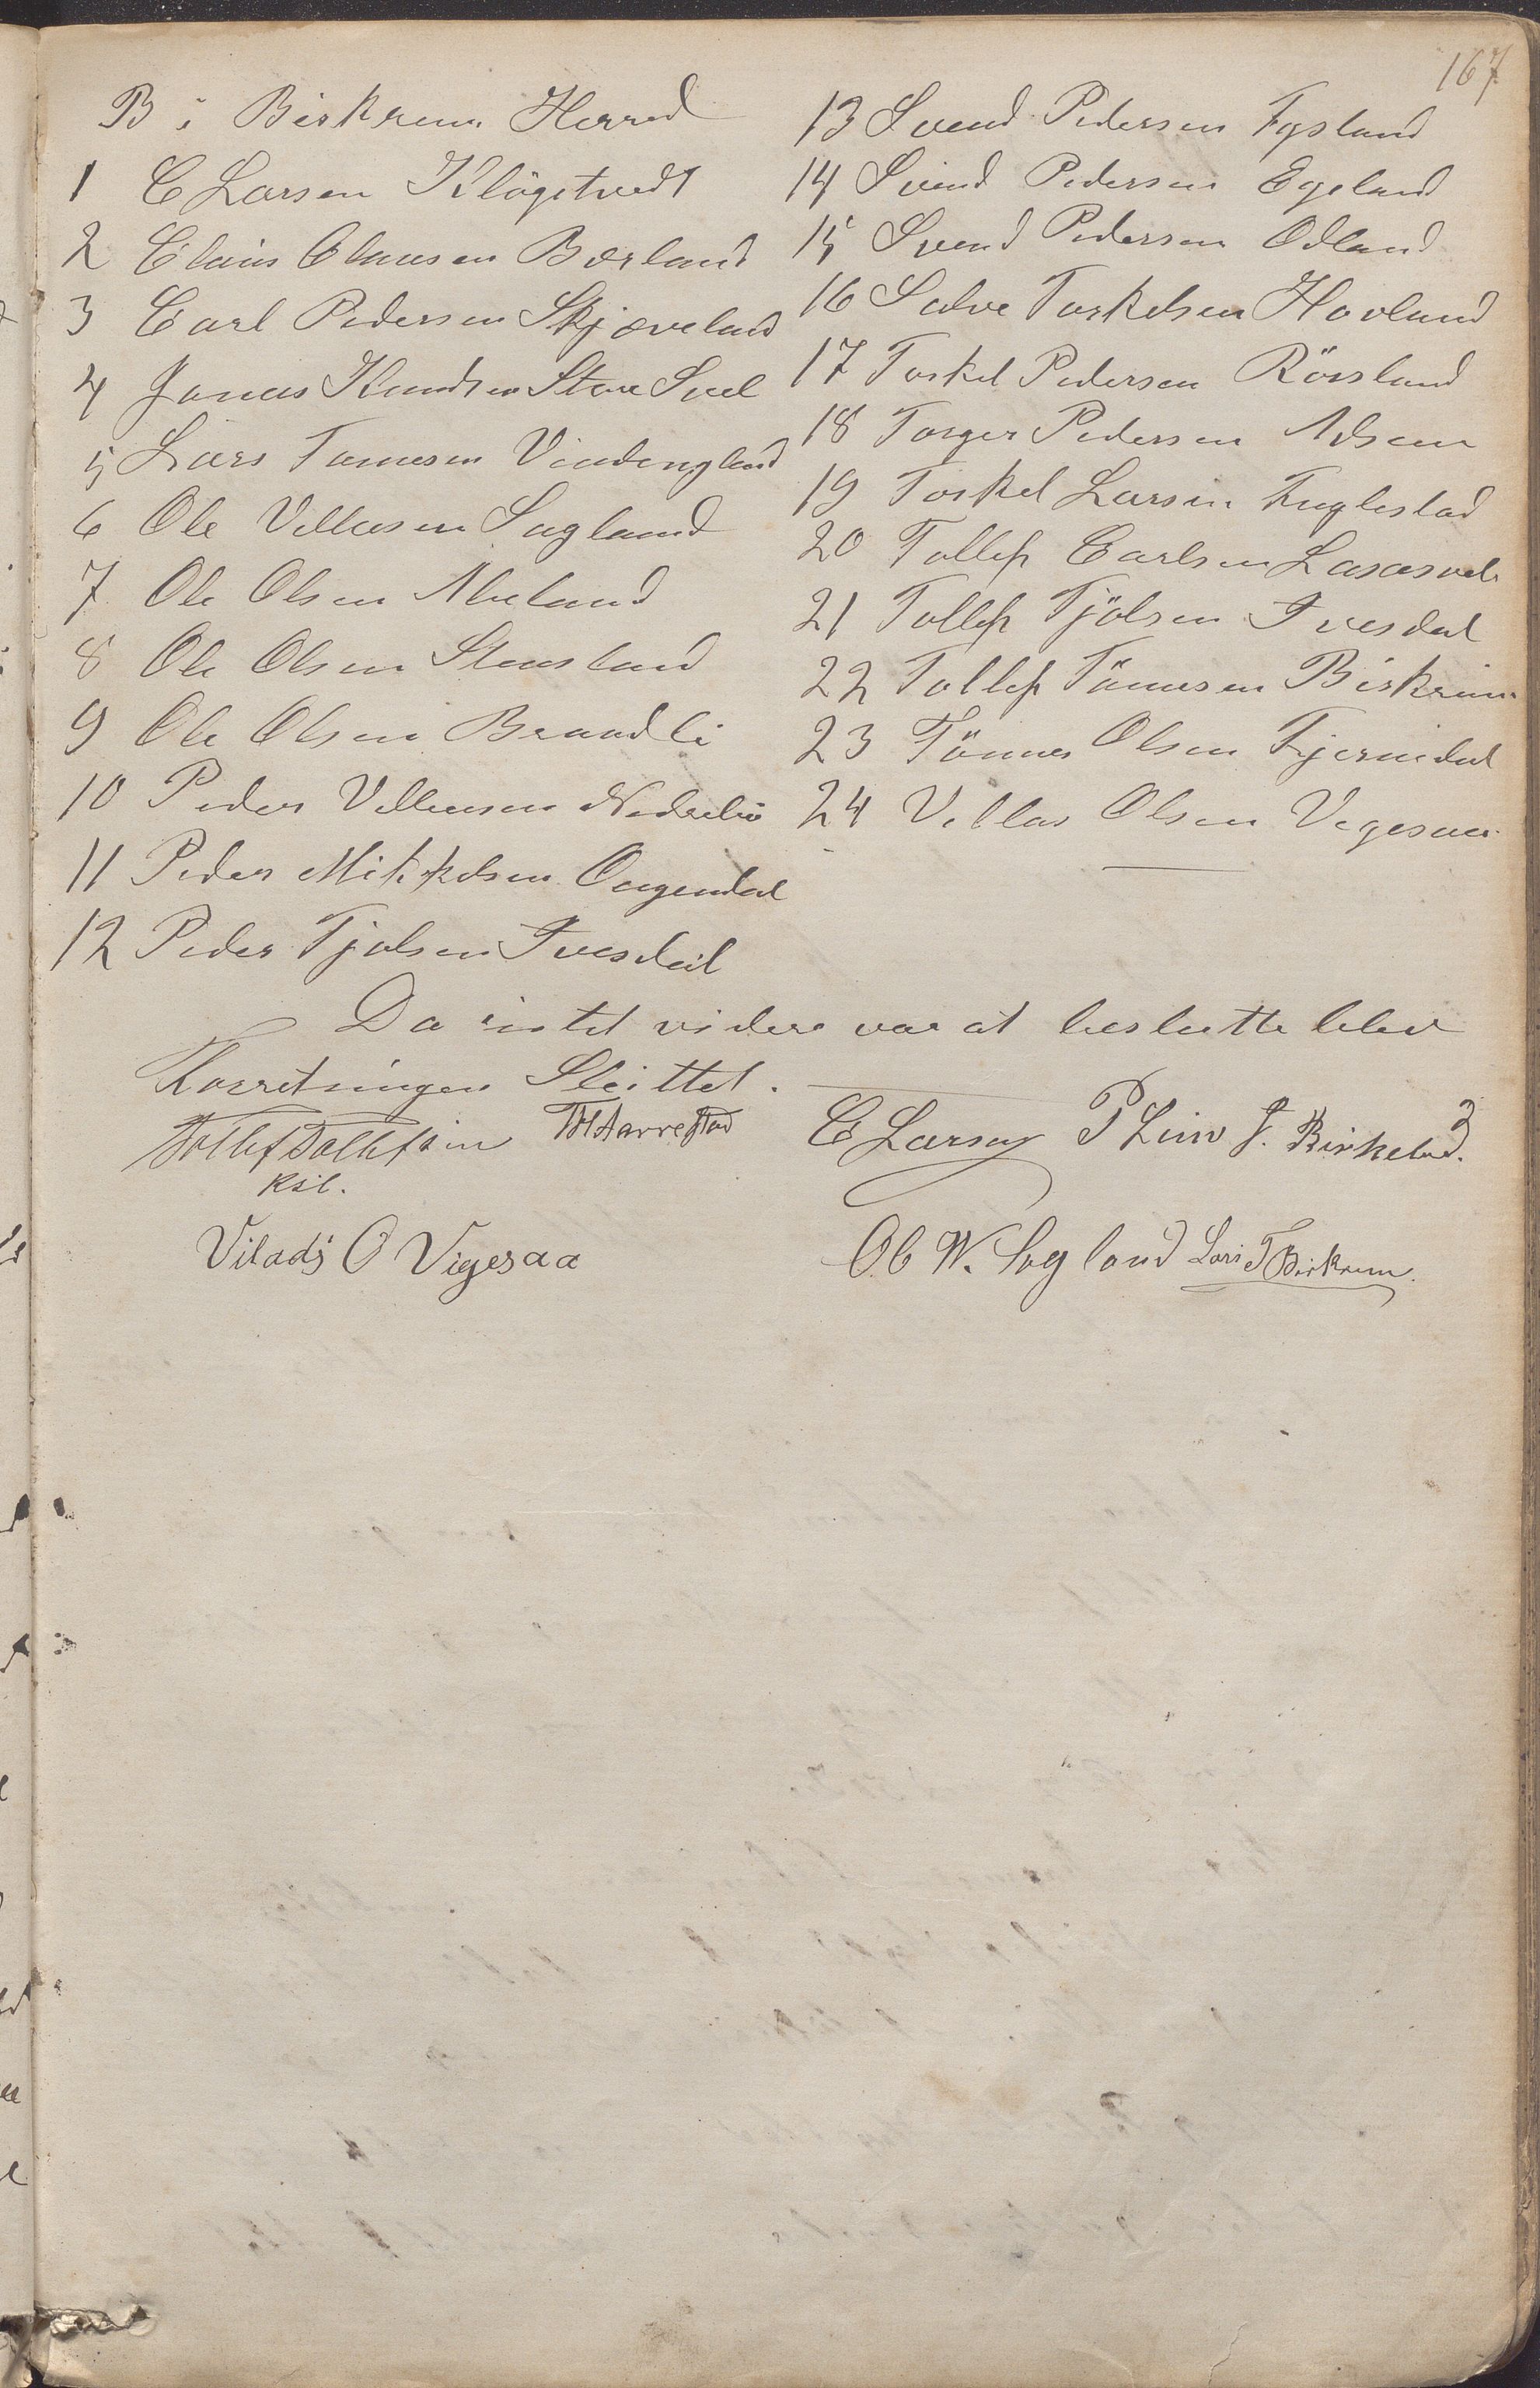 167
B i Birkrem Herred
1 C Larsen Klögetvedt
2 Claus Clausen Bærland
3 Carl Pedersen Skjæveland
4 Jonas Knudsen Store Svel
5 Lars Tønnesen Vindengland
6 Ole Villassen Sagland
7 Ole Olsen Aaeland
8 Ole Olsen Stensland
9 Ole Olsen Braadli
10 Peder Villassen Nedrebö
11 Peder Mikkelsen Oegendal
12 Peder Tjolsen Ivesdal
13 Svend Pedersen Fygland
14 Svend Pedersen Egeland
15 Svend Pedersen Odland
16 Salve Torkelsen Hovland
17 Torkel Pedersen Røysland
18 Torger Pedersen
19 Torkel Larsen Fuglestad
20 Tollef Carlsen
21 Tollef Tjölsen Ivesdal
22 Tollef Tönnesen Birkrem
23 Tönnes Olsen Tjørndal
24 Villas Olsen Vegesaa
Da intet videre var at beslutte blev
Forretningen Sluttet.
Tollef Tollefsen TH Aarrestad C Larsen P Lino J. Birkeland.
Ksl.
Vilads O Vigesaa Ole W. Sagland Lars T Birkrem